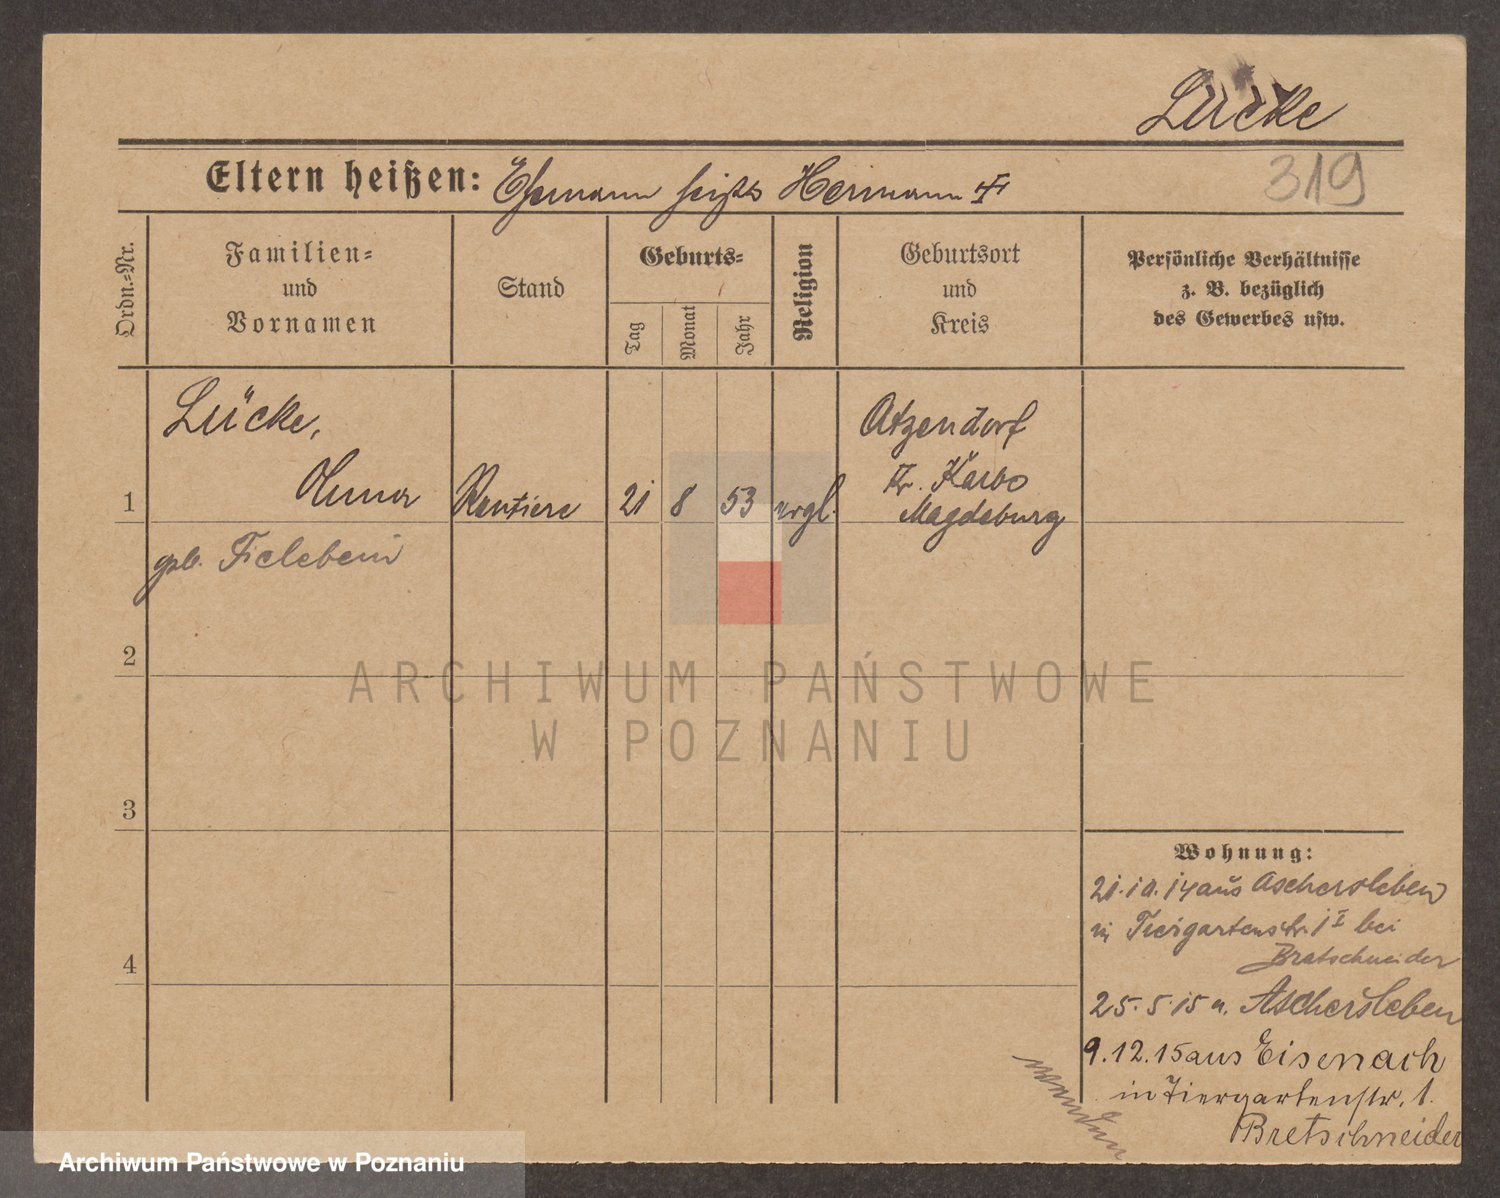 Lücke
Eltern heißen: Ehemann heißt Hermann †
319
Ordn.=Nr.
Familien=
und
Vornamen
Stand
Geburts=
Tag
Monat
Jahr
Religion
Geburtsort
und
Kreis
Persönliche Verhältnisse
z. B. bezüglich
des Gewerbes usw.
Lücke,
1
Rentiere
21 8 53 evgl.
Atzendorf
Kr.
Magdeburg
geb.
2
ARCHIWUM PAŃSTWOWE
W POZNANIU
3
4
Wohnung:
21.10.14 aus Aschersleben
in Tiergartenstr. 1 I bei
Bratschneider
25.5.15 n. Aschersleben
9.12.15 aus Eisenach
in Tiergartenstr. 1.
Bretschneider
wenden
Archiwum Państwowe w Poznaniu